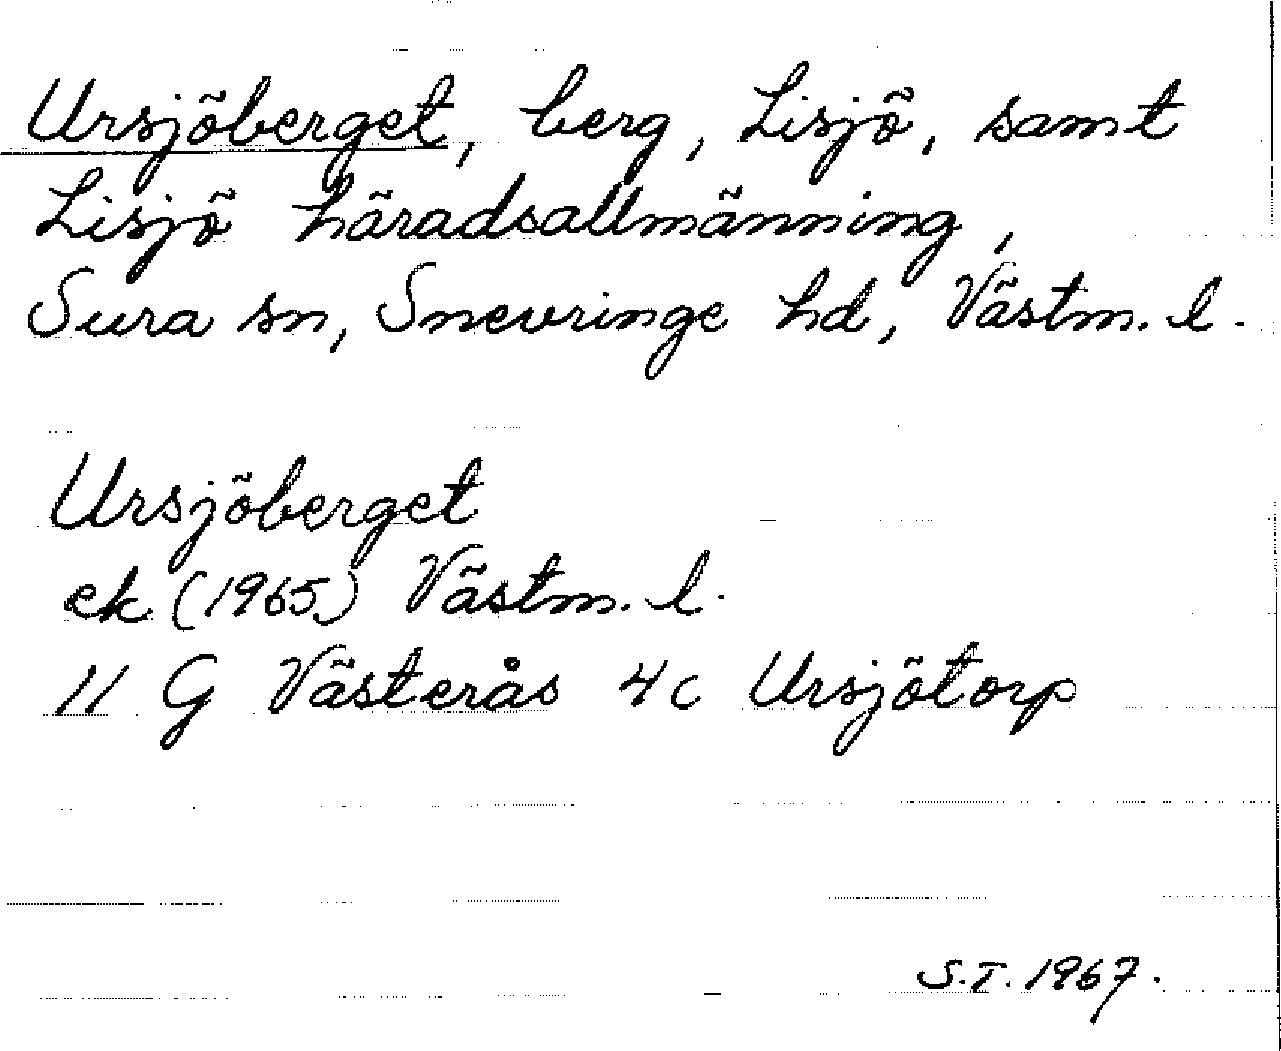 Ursjöberget, berg, Lisjö, samt
Lisjö häradsallmänning,
Sura sn, Snevringe hd, Västm. l.
Ursjöberget
ek (1965) Västm. l.
11 G Västerås 4c Ursjötorp
S.T. 1967.